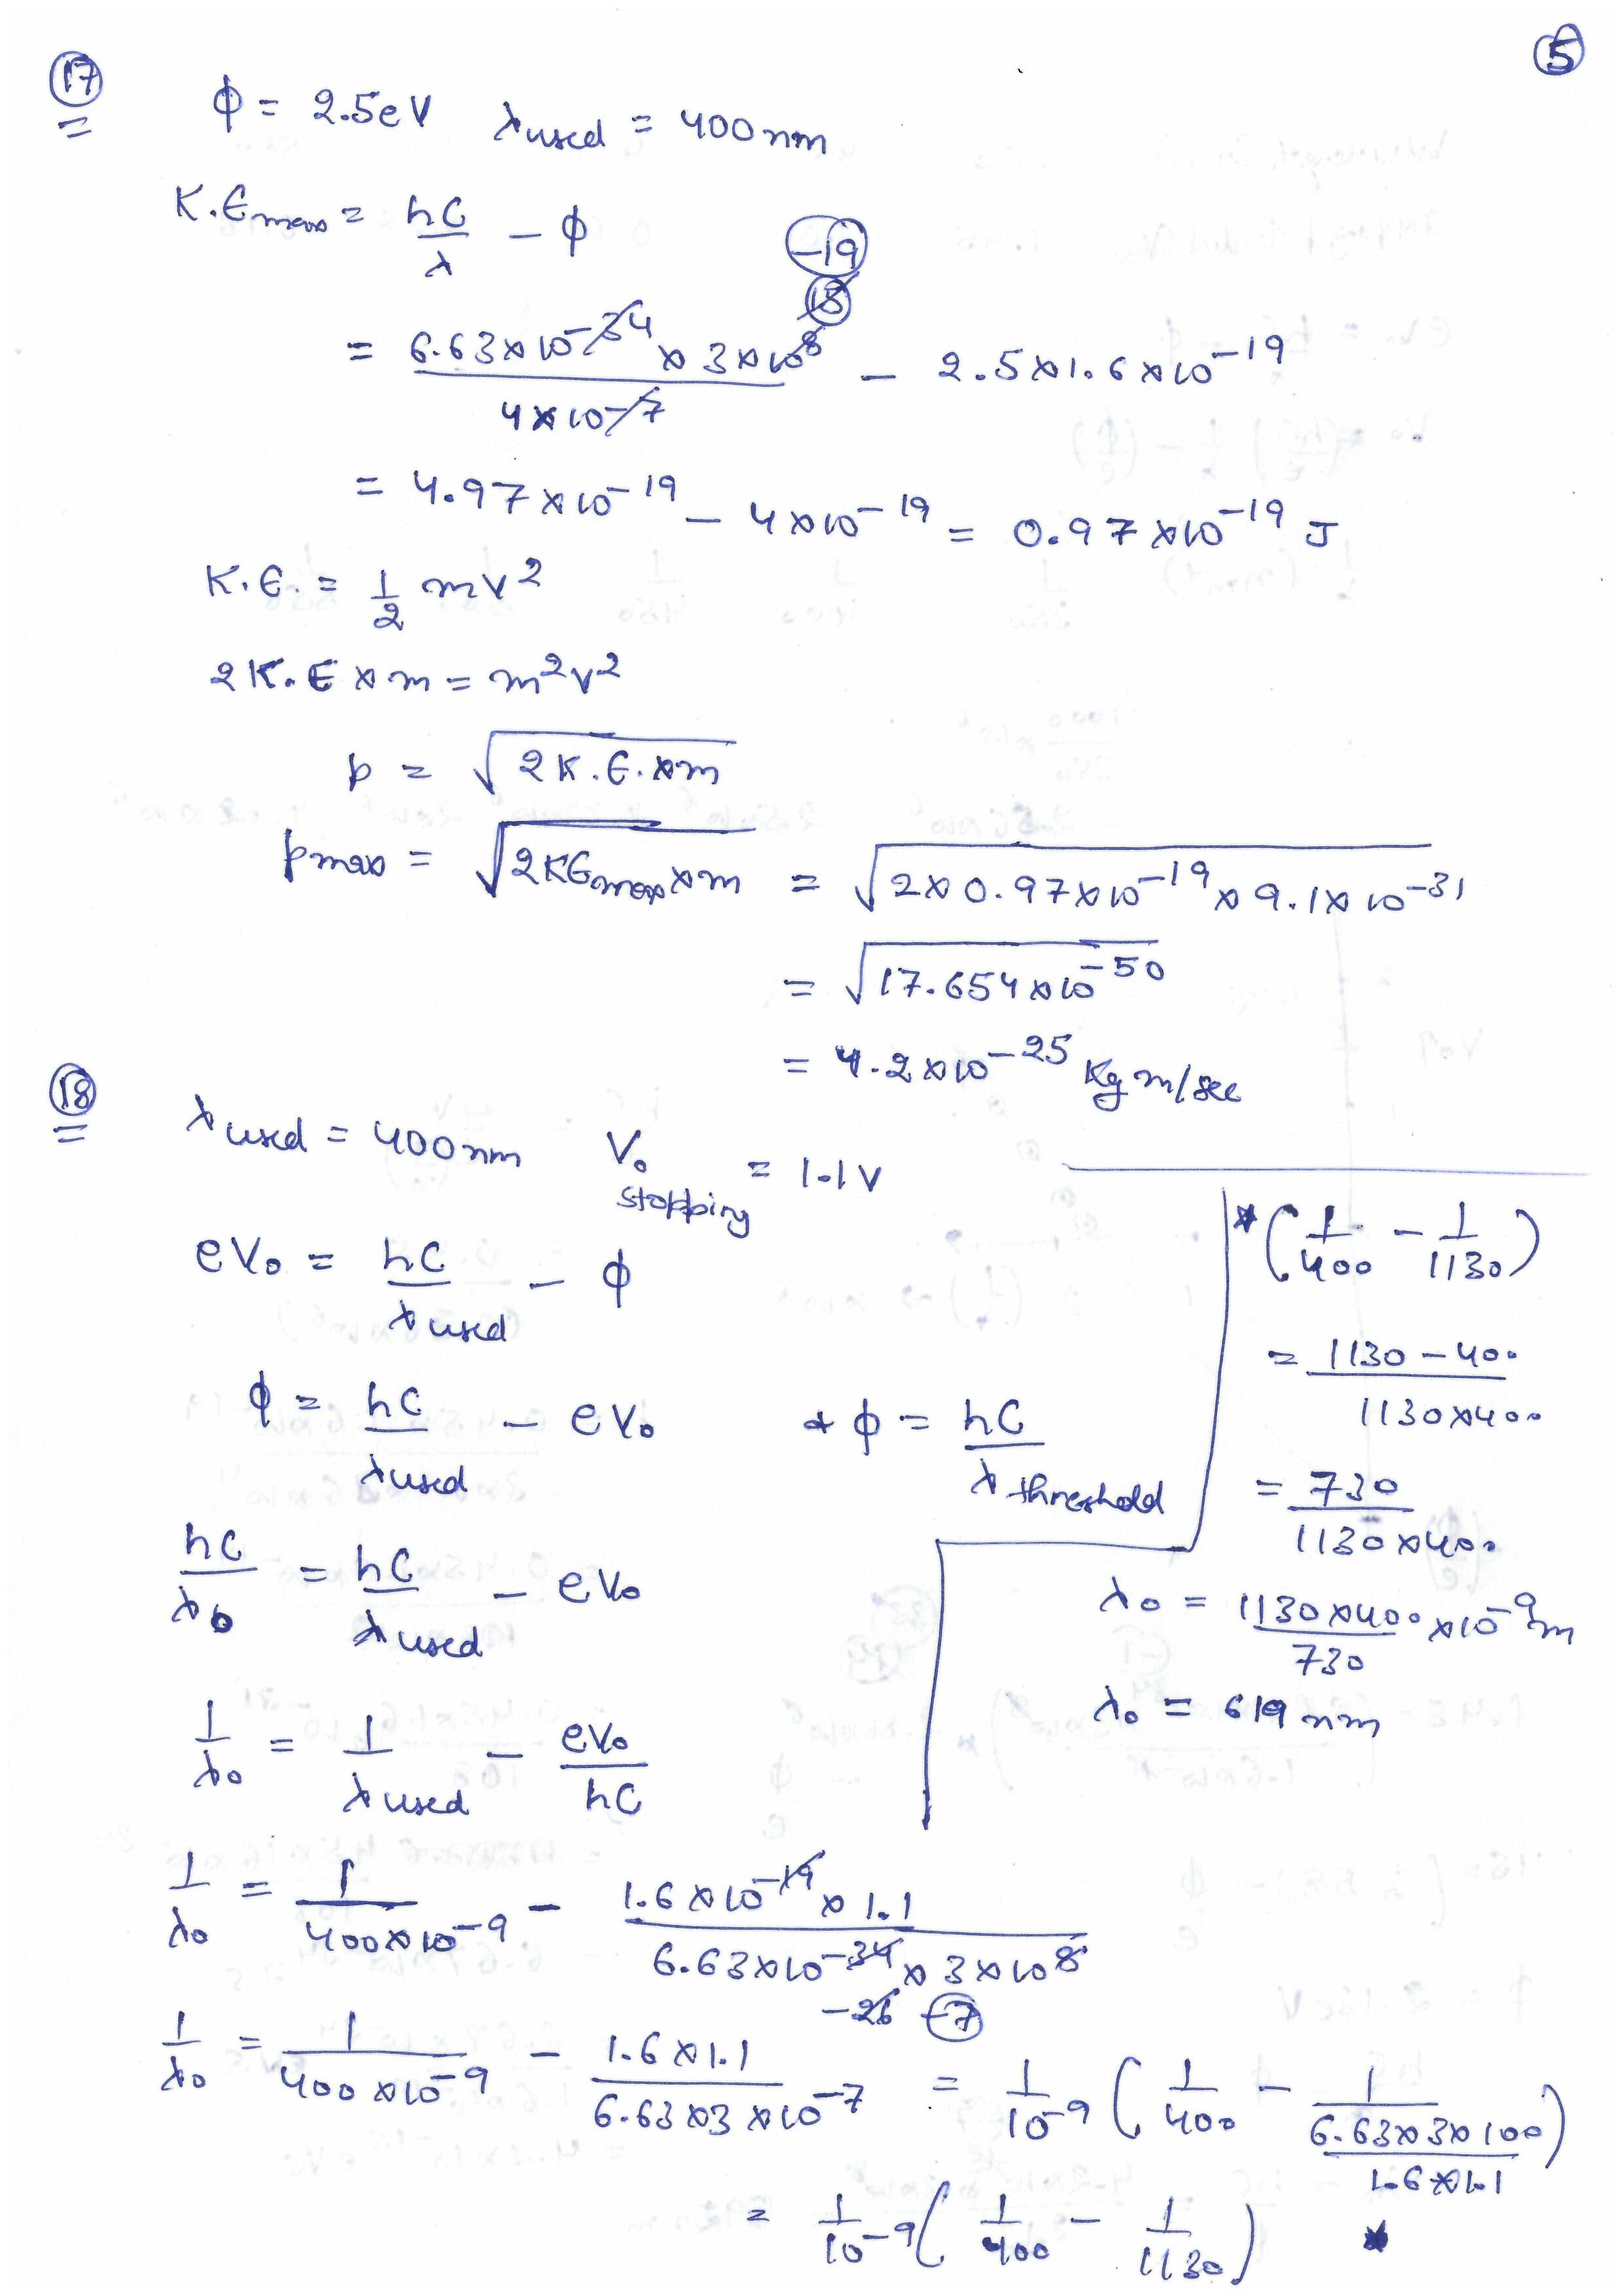 (5)
(17) φ = 2.5eV λused = 400nm
K.Emax = hC/λ − φ
= (6.63×10^-34 × 3×10^8)/(4×10^-7) − 2.5×1.6×10^-19
15
-19
= 4.97×10^-19 − 4×10^-19 = 0.97×10^-19 J
K.E. = 1/2 mv^2
2K.E×m = m^2v^2
p = √(2K.E.×m)
pmax = √(2KEmax×m) = √(2×0.97×10^-19×9.1×10^-31)
= √(17.654×10^-50)
= 4.2×10^-25 Kg m/sec
(18) λused = 400nm V₀ stopping = 1.1V
eV₀ = hC/λused − φ
φ = hC/λused − eV₀ & φ = hC/λthreshold
hC/λ₀ = hC/λused − eV₀
1/λ₀ = 1/λused − eV₀/hC
1/λ₀ = 1/(400×10^-9) − (1.6×10^-19×1.1)/(6.63×10^-34×3×10^8)
-26 (-7)
1/λ₀ = 1/(400×10^-9) − (1.6×1.1)/(6.63×3×10^-7) = 1/10^-9 (1/400 − 1/((6.63×3×100)/(1.6×1.1)))
= 1/10^-9 (1/400 − 1/1130) *
* (1/400 − 1/1130)
= (1130−400)/(1130×400)
= 730/(1130×400)
λ₀ = (1130×400)/730 ×10^-9 m
λ₀ = 619 nm